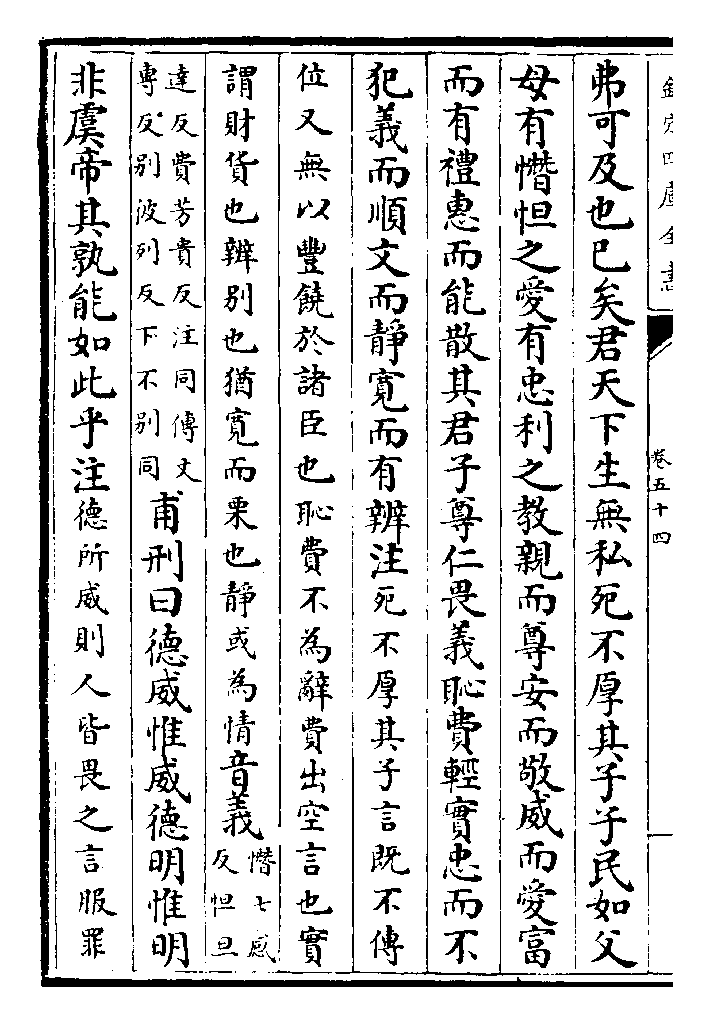 欽定四庫全書
卷五十四
弗可及也已矣君天下生無私死不厚其子子民如父
母有憯怛之愛有忠利之教親而尊安而敬威而愛富
而有禮惠而能散其君子尊仁畏義恥費輕實忠而不
犯義而順文而靜寬而有辨注死不厚其子言既不傳
位又無以豐饒於諸臣也恥費不為辭費出空言也實
謂財貨也辨別也猶寛而栗也靜或為情音義憯七感
反怛旦
達反費芳貴反注同傳文
專反別彼列反下不別同甫刑曰德威惟威德明惟明
非虞帝其孰能如此乎注德所威則人皆畏之言服罪